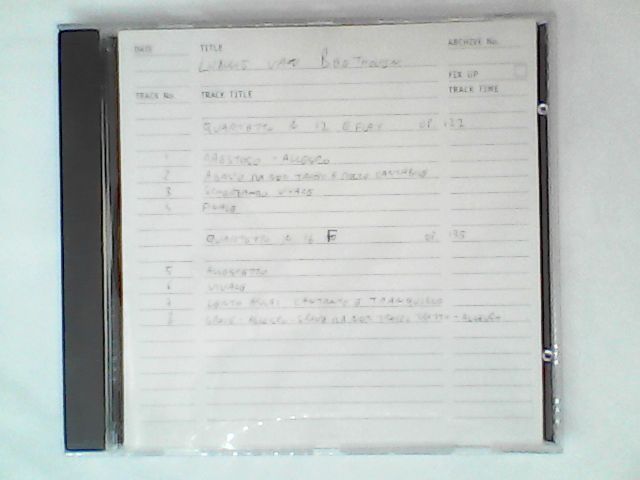 DATE TITLE ARCHIVE No.
LUDWIG VAN BEETHOVEN
FIX UP
TRACK No. TRACK TITLE TRACK TIME
QUARTETTO N 12 E FLAT OP. 127
1 MAESTOSO - ALLEGRO
2 ADAGIO MA NON TROPPO E MOLTO CANTABILE
3 SCHERZANDO VIVACE
4 FINALE
QUARTETTO N 16 F OP. 135
5 ALLEGRETTO
6 VIVACE
7 LENTO ASSAI CANTANTE E TRANQUILLO
8 GRAVE - ALLEGRO - GRAVE MA NON TROPPO TRATTO - ALLEGRO